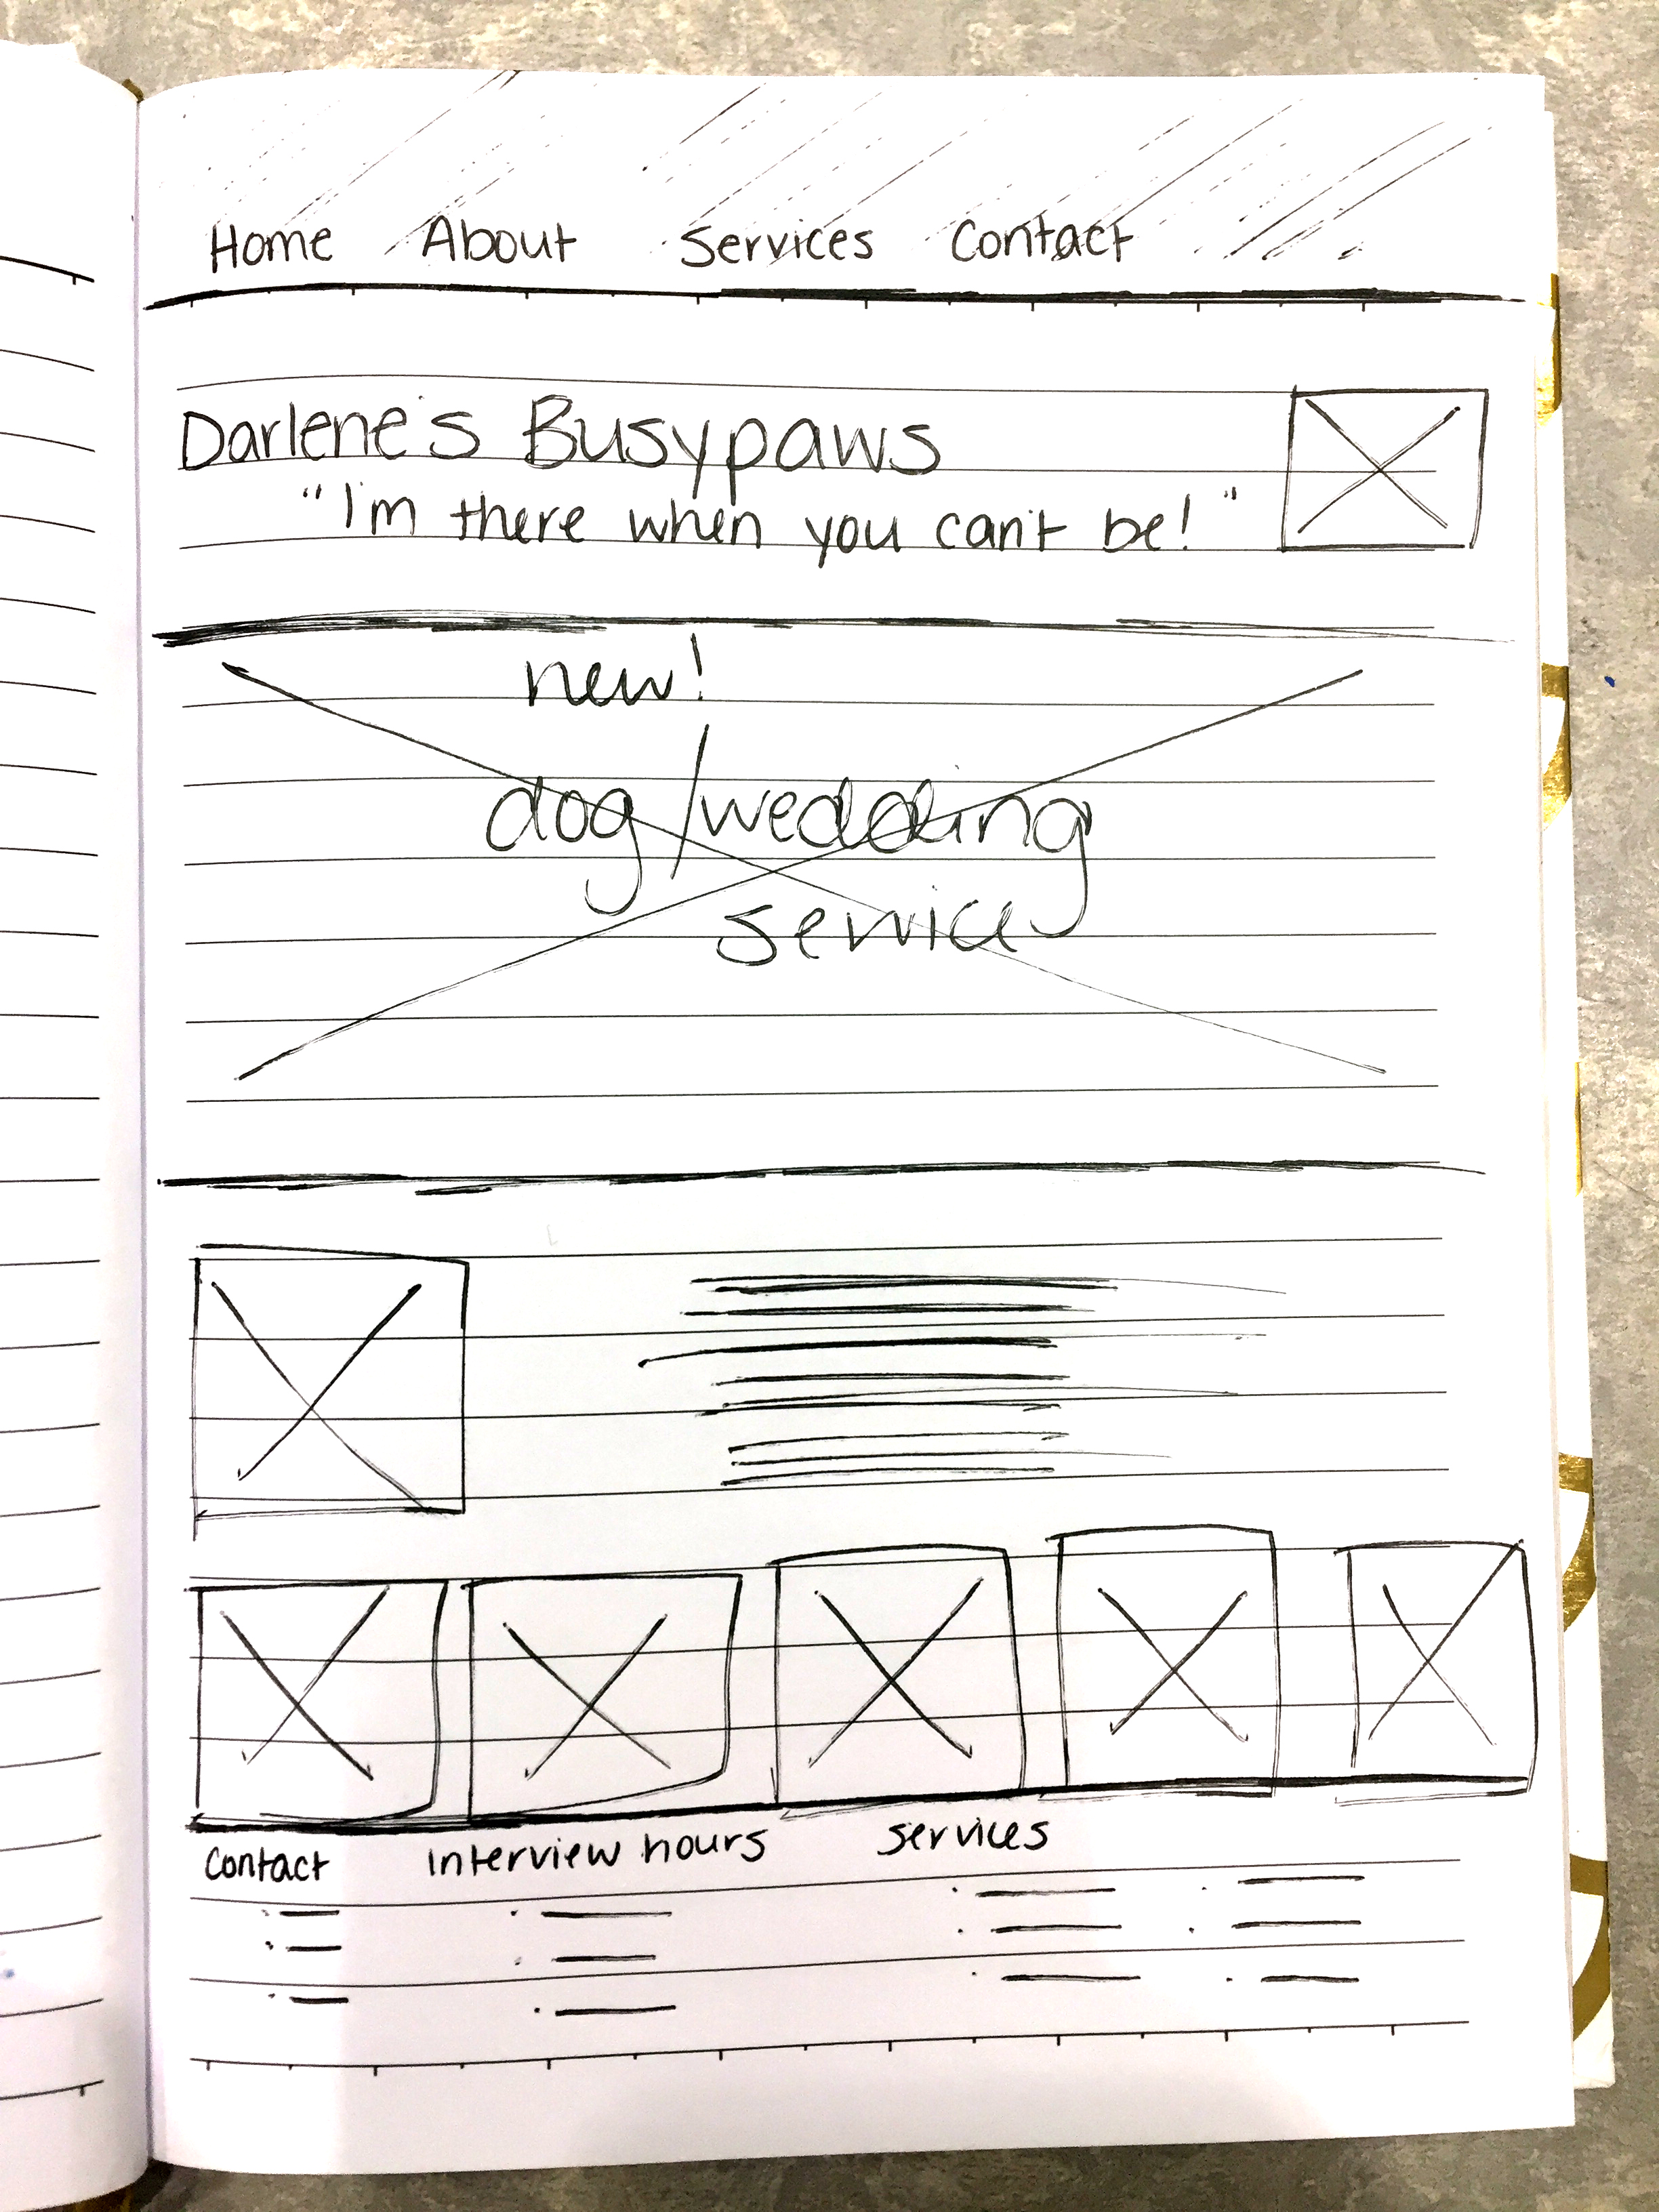 Home About Services Contact
Darlene's Busypaws
"I'm there when you can't be!"
new!
dog/wedding
service
Contact Interview hours services